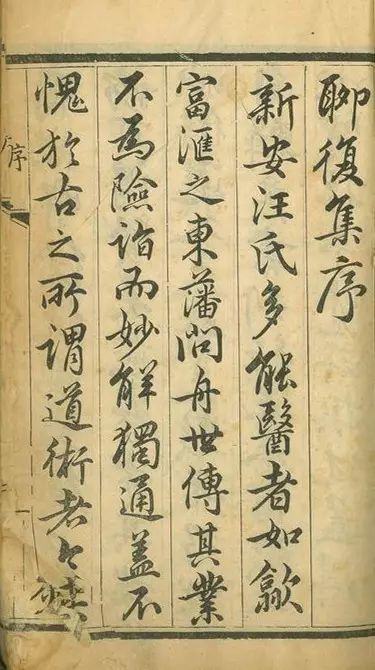 聊復集序
新安汪氏多能醫者如歙
富滙之東藩問舟世傳其業
不為險詣而妙解獨通盖不
愧於古之所謂道術者
序